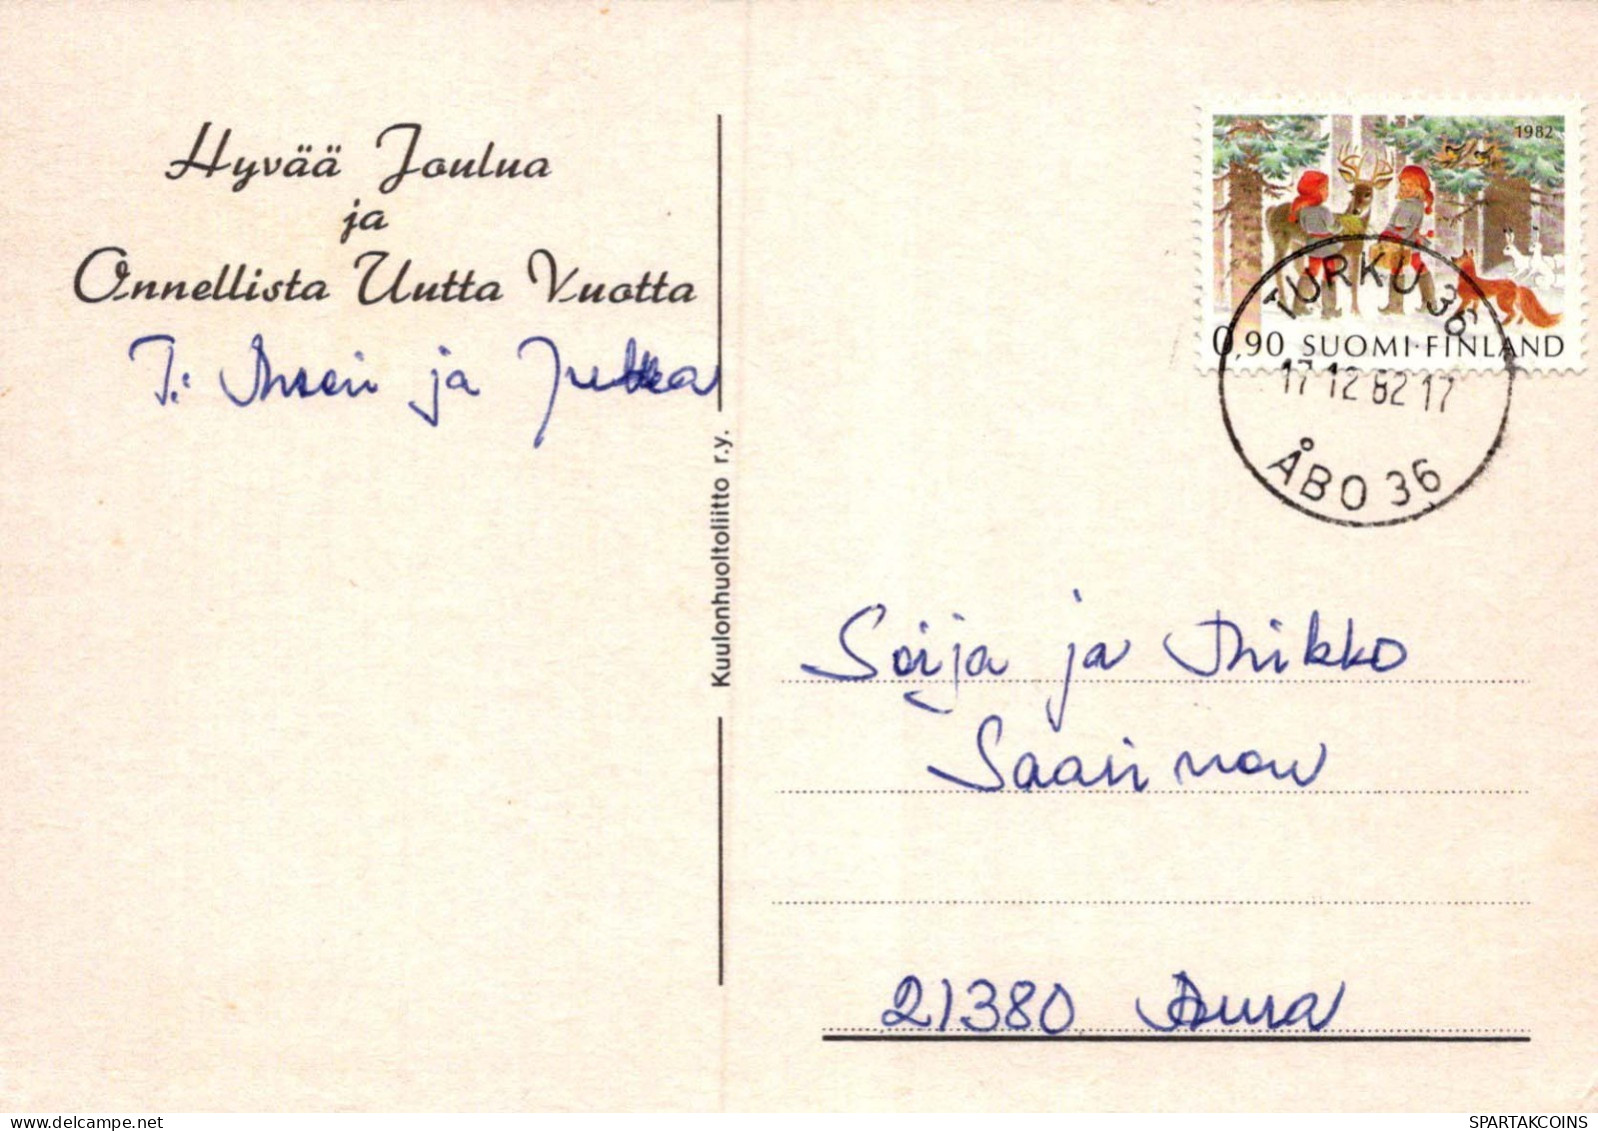 Hyvää Joulua
ja
Onnellista Uutta Vuotta
T: ja Jukka
Kuulonhuoltoliitto r.y.
1982
0,90 SUOMI-FINLAND
TURKU 36
17 12 82 17
ÅBO 36
Soija ja Mikko
Saarinen
21380 Aura
delcampe.net
SPARTAKCOINS